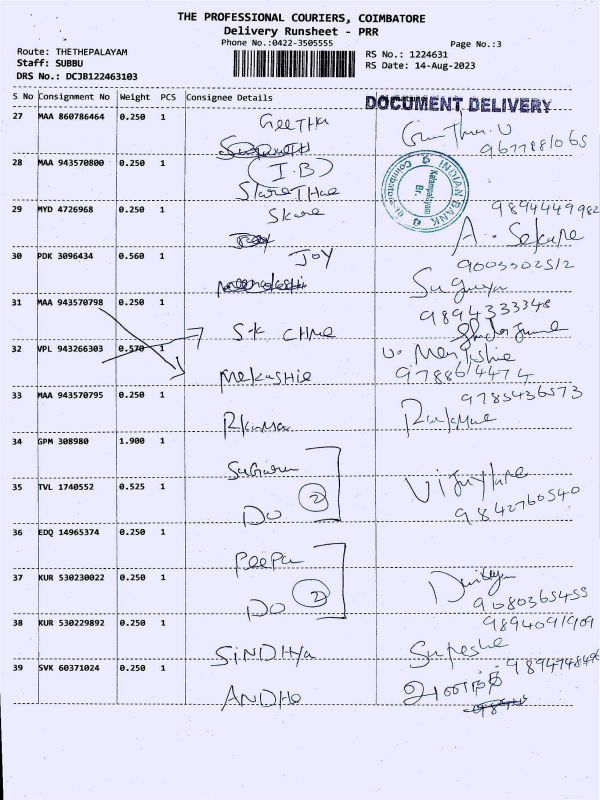 THE PROFESSIONAL COURIERS, COIMBATORE
Delivery Runsheet - PRR
Phone No.:0422-3505555
Page No.:3
Route: THETHEPALAYAM
Staff: SUBBU
DRS No.: DCJB122463103
RS No.: 1224631
RS Date: 14-Aug-2023
S No Consignment No Weight PCS Consignee Details
DOCUMENT DELIVERY
27 MAA 860786464 0.250 1 GEETHA
28 MAA 943570800 0.250 1 (I.B)
INDIAN BANK
29 MYD 4726968 0.250 1 Skare
9894449982
A. Sekare
30 PDK 3096434 0.560 1 JOY
9003302512
31 MAA 943570798 0.250 1
9894333348
32 VPL 943266303 0.570 1 Mekashie
9788614474
33 MAA 943570795 0.250 1
9785436573
34 GPM 308980 1.900 1
35 TVL 1740552 0.525 1 Do (2)
9842760540
36 EDQ 14965374 0.250 1 Peepa
37 KUR 530230022 0.250 1 Do (2)
9080365455
38 KUR 530229892 0.250 1 SiNDHya
9894091909
39 SVK 60371024 0.250 1 ANDHe
9894748496